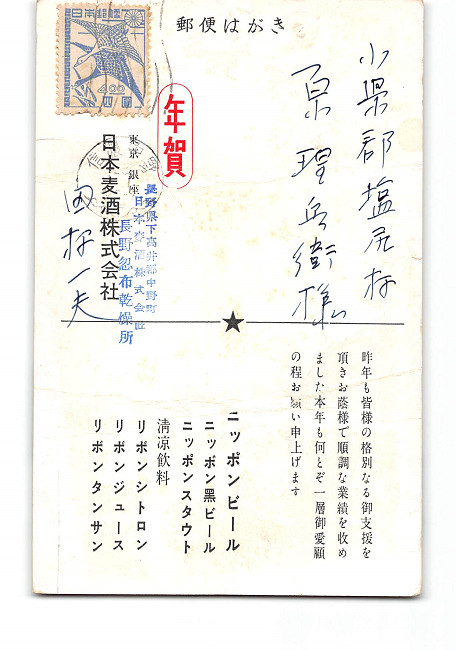 郵便はがき
日本郵便
4.00
四円
年賀
小県郡塩尻村
原 瑝兵衛様
東京 銀座
日本麦酒株式会社
長野県下高井郡中野町
日本麦酒株式会社
長野忽布乾燥所
一夫
昨年も皆様の格別なる御支援を
頂きお蔭様で順調な業績を收め
ました本年も何とぞ一層御愛顧
の程お願い申上げます
ニッポンビール
ニッポン黒ビール
ニッポンスタウト
清凉飲料
リボンシトロン
リボンジュース
リボンタンサン